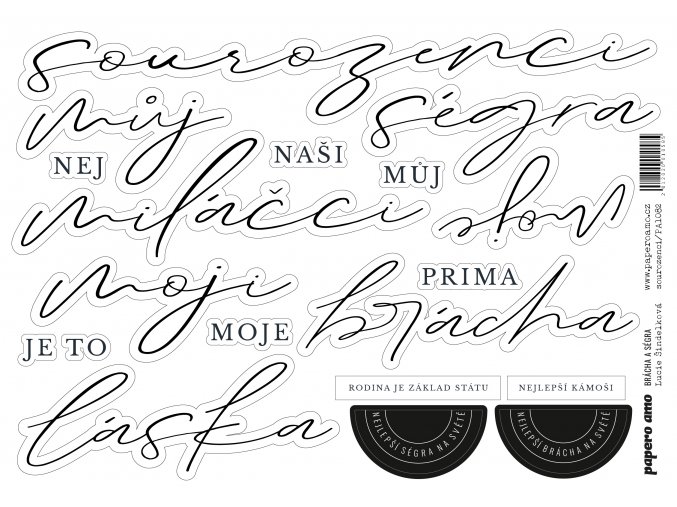 sourozenci
můj
ségra
NEJ
NAŠI
MŮJ
miláčci
moji
moji
PRIMA
brácha
JE TO
MOJE
láska
RODINA JE ZÁKLAD STÁTU
NEJLEPŠÍ KÁMOŠI
NEJLEPŠÍ SÉGRA NA SVĚTĚ
NEJLEPŠÍ BRÁCHA NA SVĚTĚ
www.paperoamo.cz
sourozenci/PA1082
papero amo
BRÁCHA A SÉGRA
Lucie Šindelková